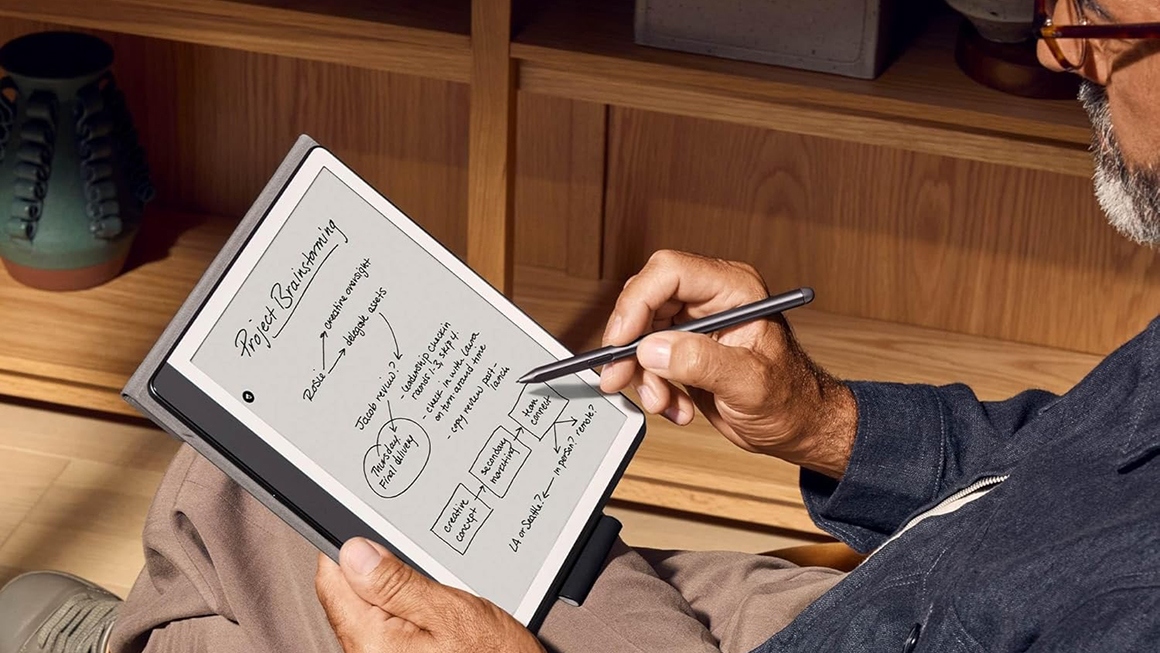 Project Brainstorming
Rosie
creative oversight
delegate assets
Jacob review?
Thursday:
Final delivery
- leadership checkin
rounds 1-3, skip 4.
- check in with Laura
on turn around time
- copy review post-
launch
creative
concept
secondary
marketing
team
connect
in person?
remote?
LA or Seattle?